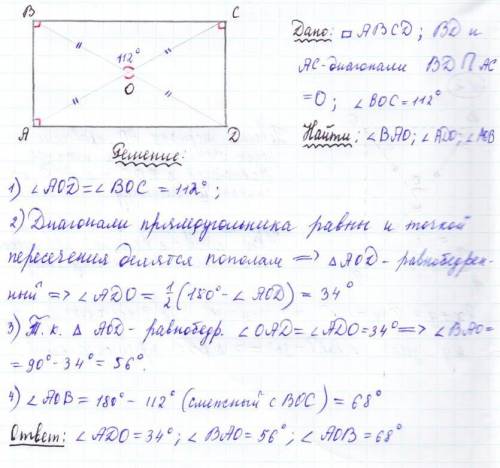 B C
112°
O
A D
Дано: □ ABCD; BD и
AC-диагонали BD ∩ AC
= O; ∠BOC = 112°
Найти: ∠BAO; ∠ADO; ∠AOB
Решение:
1) ∠AOD = ∠BOC = 112°;
2) Диагонали прямоугольника равны и точкой
пересечения делятся пополам => △AOD - равнобедрен-
ный => ∠ADO = 1/2 (180° - ∠AOD) = 34°
3) Т.к. △ AOD - равнобедр. ∠OAD = ∠ADO = 34° => ∠BAO =
= 90° - 34° = 56°.
4) ∠AOB = 180° - 112° (смежный с BOC) = 68°
Ответ: ∠ADO = 34°; ∠BAO = 56°; ∠AOB = 68°